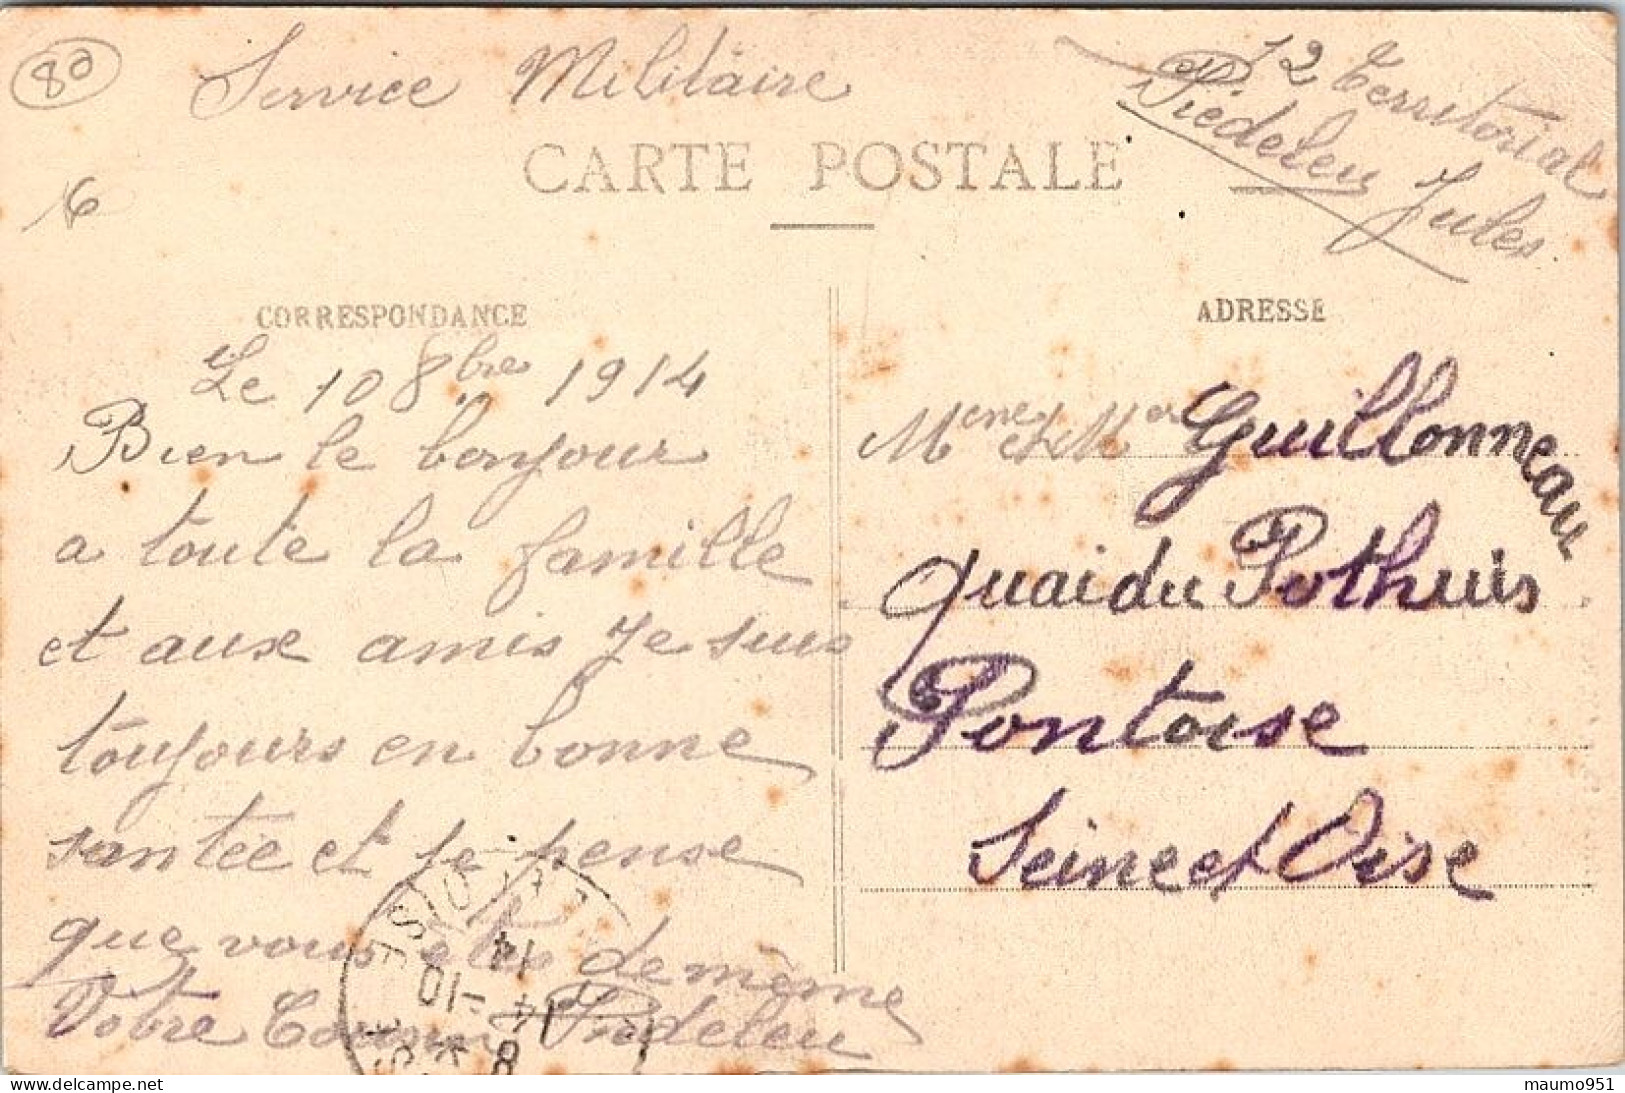 80
Service Militaire
12 Territorial
Piedeleu Jules
6
CARTE POSTALE
CORRESPONDANCE
Le 10 8bre 1914
Bien le bonjour
a toute la famille
et aux amis Je suis
toujours en bonne
santée et je pense
que vous etes de même
Votre Cousin Piedeleu
ADRESSE
Mme et Mr Guillonneau
quai du Pothuis
Pontoise
Seine et Oise
14 -10
14
8
maumo951